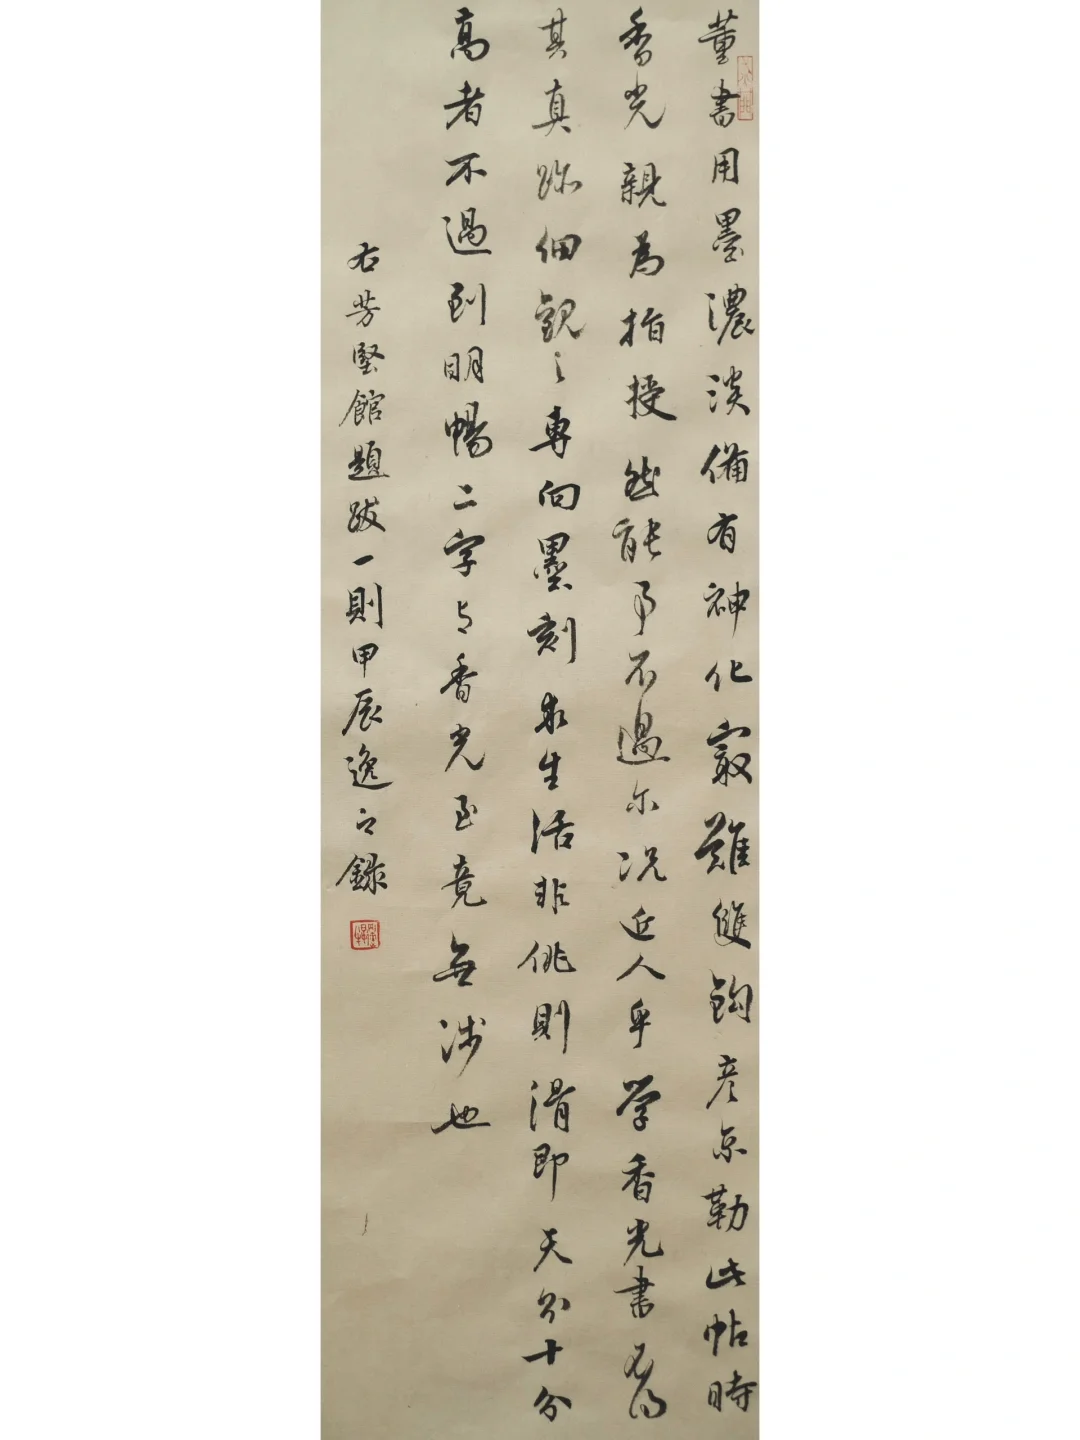 董書用墨濃淡備有神化寂難雙鈎彦京勒此帖時
香光親為指授然能事不過尓況近人乎學香光書不得
其真跡細觀之專向墨刻求生活非佻則滑即天分十分
高者不過到明暢二字与香光至竟無涉也
右芳堅館題跋一則甲辰逸之錄